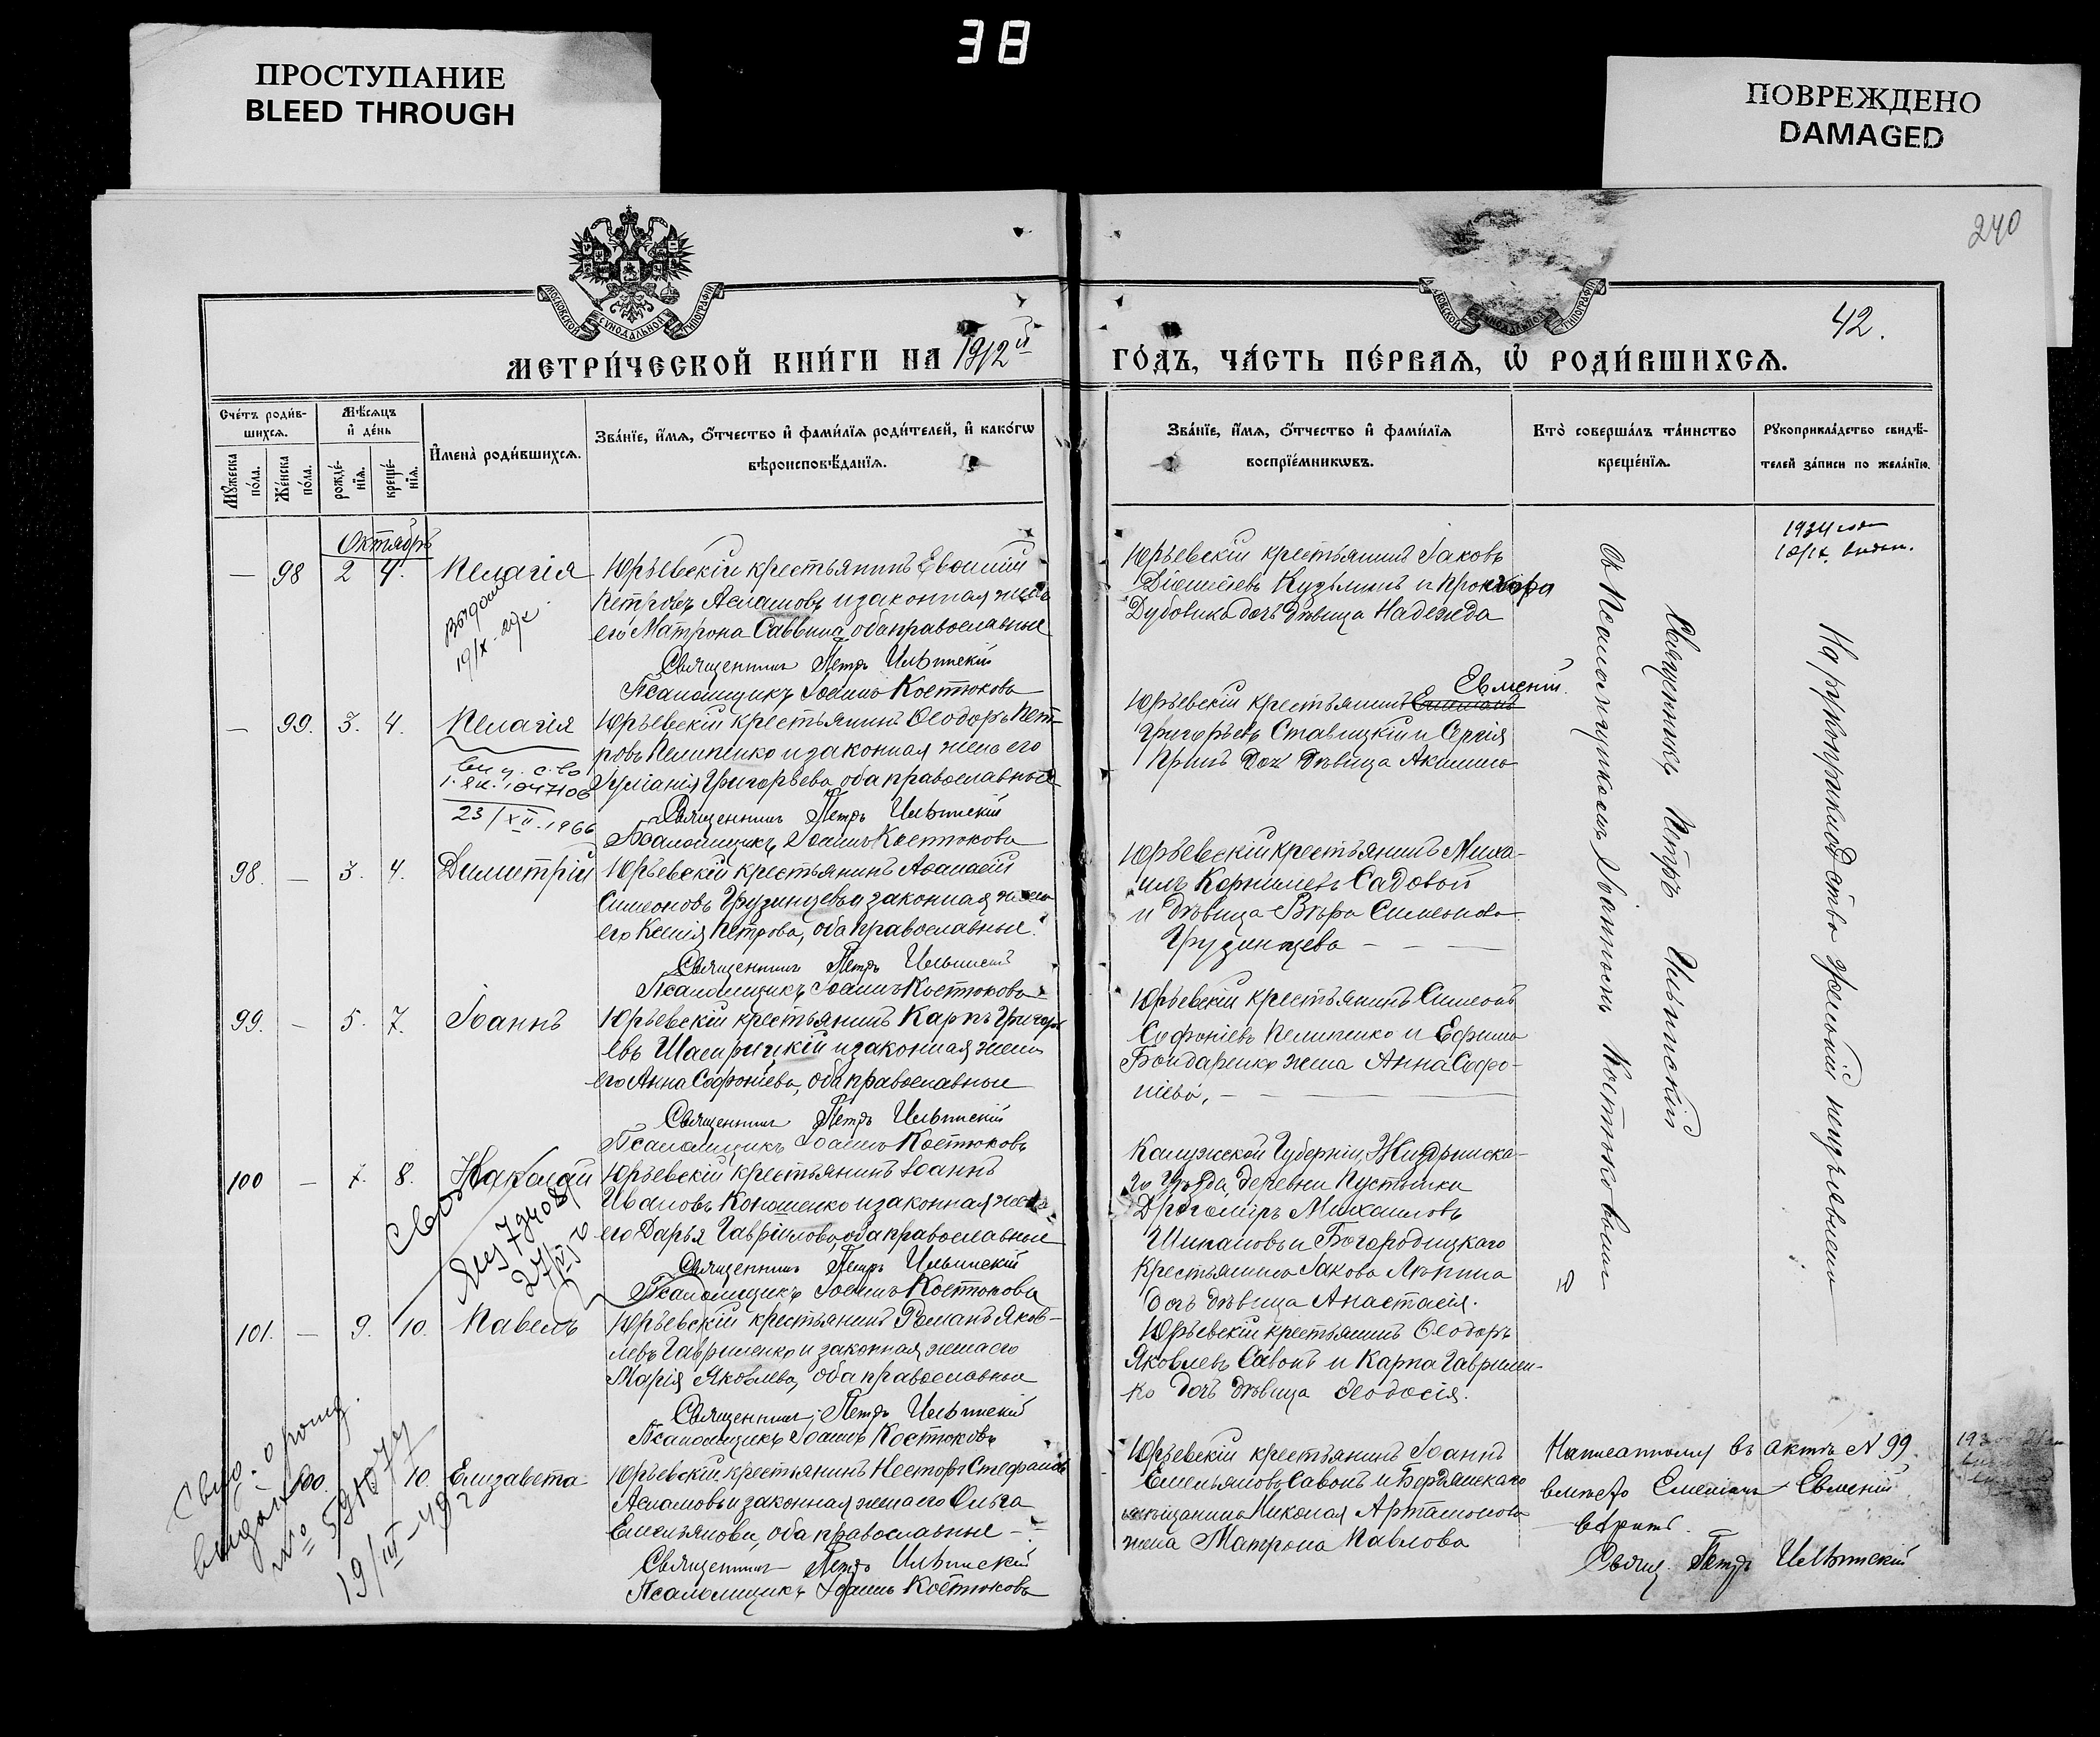 38
ПРОСТУПАНИЕ
BLEED THROUGH
ПОВРЕЖДЕНО
DAMAGED
240
42.
МОСКОВСКОЙ СѴНОДАЛЬНОЙ ТИПОГРАФІИ
СѴНОДАЛЬНОЙ ТИПОГРАФІИ
МЕТРИ́ЧЕСКОЙ КНИ́ГИ НА 1912й
ГО́ДЪ, ЧА́СТЬ ПЕ́РВАЯ, Ѿ РОДИ́ВШИХСЯ.
Сче́тъ роди́вшихся.
Мꙋ́жеска по́ла.
Же́нска по́ла.
Мѣ́сяцъ и҆ де́нь
рожде́нїя.
креще́нїя.
И҆мена̀ роди́вшихся.
Зва́нїе, и҆́мя, о҆́тчество и҆ фами́лїя роди́телей, и҆ како́гѡ
вѣроисповѣ́данїя.
Зва́нїе, и҆́мя, о҆́тчество и҆ фами́лїя
воспрїе́мникѡвъ.
Кто̀ соверша́лъ та́инство
креще́нїя.
Рꙋкоприкла́дство свидѣ́-
телей за́писи по жела́нїю.
Октябрь
— 98 2 4. Пелагія
Юрьевскій крестьянинъ Евѳимій
Петровъ Асламовъ и законная жена
его Матрона Саввина, оба православные
Священникъ Петръ Ильинскій
Псаломщикъ Іоаннъ Костюковъ
Юрьевскій крестьянинъ Іаковъ
Кузьминъ и Прохора
Дубовика дочь дѣвица Надежда
19/X
— 99. 3. 4. Пелагія
Юрьевскій крестьянинъ Ѳеодоръ Пет-
ровъ Пелипенко и законная жена его
Іуліанія Григорьева, оба православные
Священникъ Петръ Ильинскій
Псаломщикъ Іоаннъ Костюковъ
23/XII.1966
Евменій
Юрьевскій крестьянинъ Емеліанъ
Григорьевъ Ставицкій и Сергія
дочь дѣвица Акилина
98. — 3. 4. Димитрій
Юрьевскій крестьянинъ Аѳанасій
Симеоновъ Грузинцевъ и законная жена
его Ксенія Петрова, оба православные.
Священникъ Петръ Ильинскій
Псаломщикъ Іоаннъ Костюковъ
Юрьевскій крестьянинъ Миха-
илъ Корниліевъ Садовой
и дѣвица Вѣра Симеонова
Грузинцева — — —
99. — 5. 7. Іоаннъ
Юрьевскій крестьянинъ Карпъ Григорь-
евъ и законная жена
его Анна Софоніева, оба православные
Священникъ Петръ Ильинскій
Псаломщикъ Іоаннъ Костюковъ
Юрьевскій крестьянинъ Симеонъ
Софоніевъ Пелипенко и Ефрема
Бондаренко жена Анна Софо-
ніева, — — —
100 — 7. 8. Николай
Юрьевскій крестьянинъ Іоаннъ
Ивановъ Кономенко и законная жена
его Дарья Гавріилова, оба православные
Священникъ Петръ Ильинскій
Псаломщикъ Іоаннъ Костюковъ
Калужской Губерніи, Жиздринска-
го Уѣзда, деревни Пустынки
Михаиловъ
Шипановъ и Богородицкаго
Крестьянина Іакова Ляпина
дочь дѣвица Анастасія.
101. — 9. 10. Павелъ
Юрьевскій крестьянинъ Романъ Яков-
левъ Гавриленко и законная жена его
Марія Яковлева, оба православные
Священникъ Петръ Ильинскій
Псаломщикъ Іоаннъ Костюковъ
Юрьевскій крестьянинъ Ѳеодоръ
Яковлевъ Савонъ и Карпа Гаврилен-
ко дочь дѣвица Ѳеодосія.
100. 10. Елизавета
Юрьевскій крестьянинъ Несторъ Стефановъ
Асламовъ и законная жена его Ольга
Емельянова, оба православные —
Священникъ Петръ Ильинскій
Псаломщикъ Іоаннъ Костюковъ
Юрьевскій крестьянинъ Іоаннъ
Емельяновъ Савонъ и Бердянскаго
мѣщанина Николая Артамонова
жена Матрона Павлова
Священникъ Петръ Ильинскій
съ Псаломщикомъ Іоанномъ Костюковымъ
На рукоприкладство желаній не изъявлено
Написанному въ актѣ N 99.
вмѣсто Емеліанъ Евменій
вѣрить.
Свящ. Петръ Ильинскій